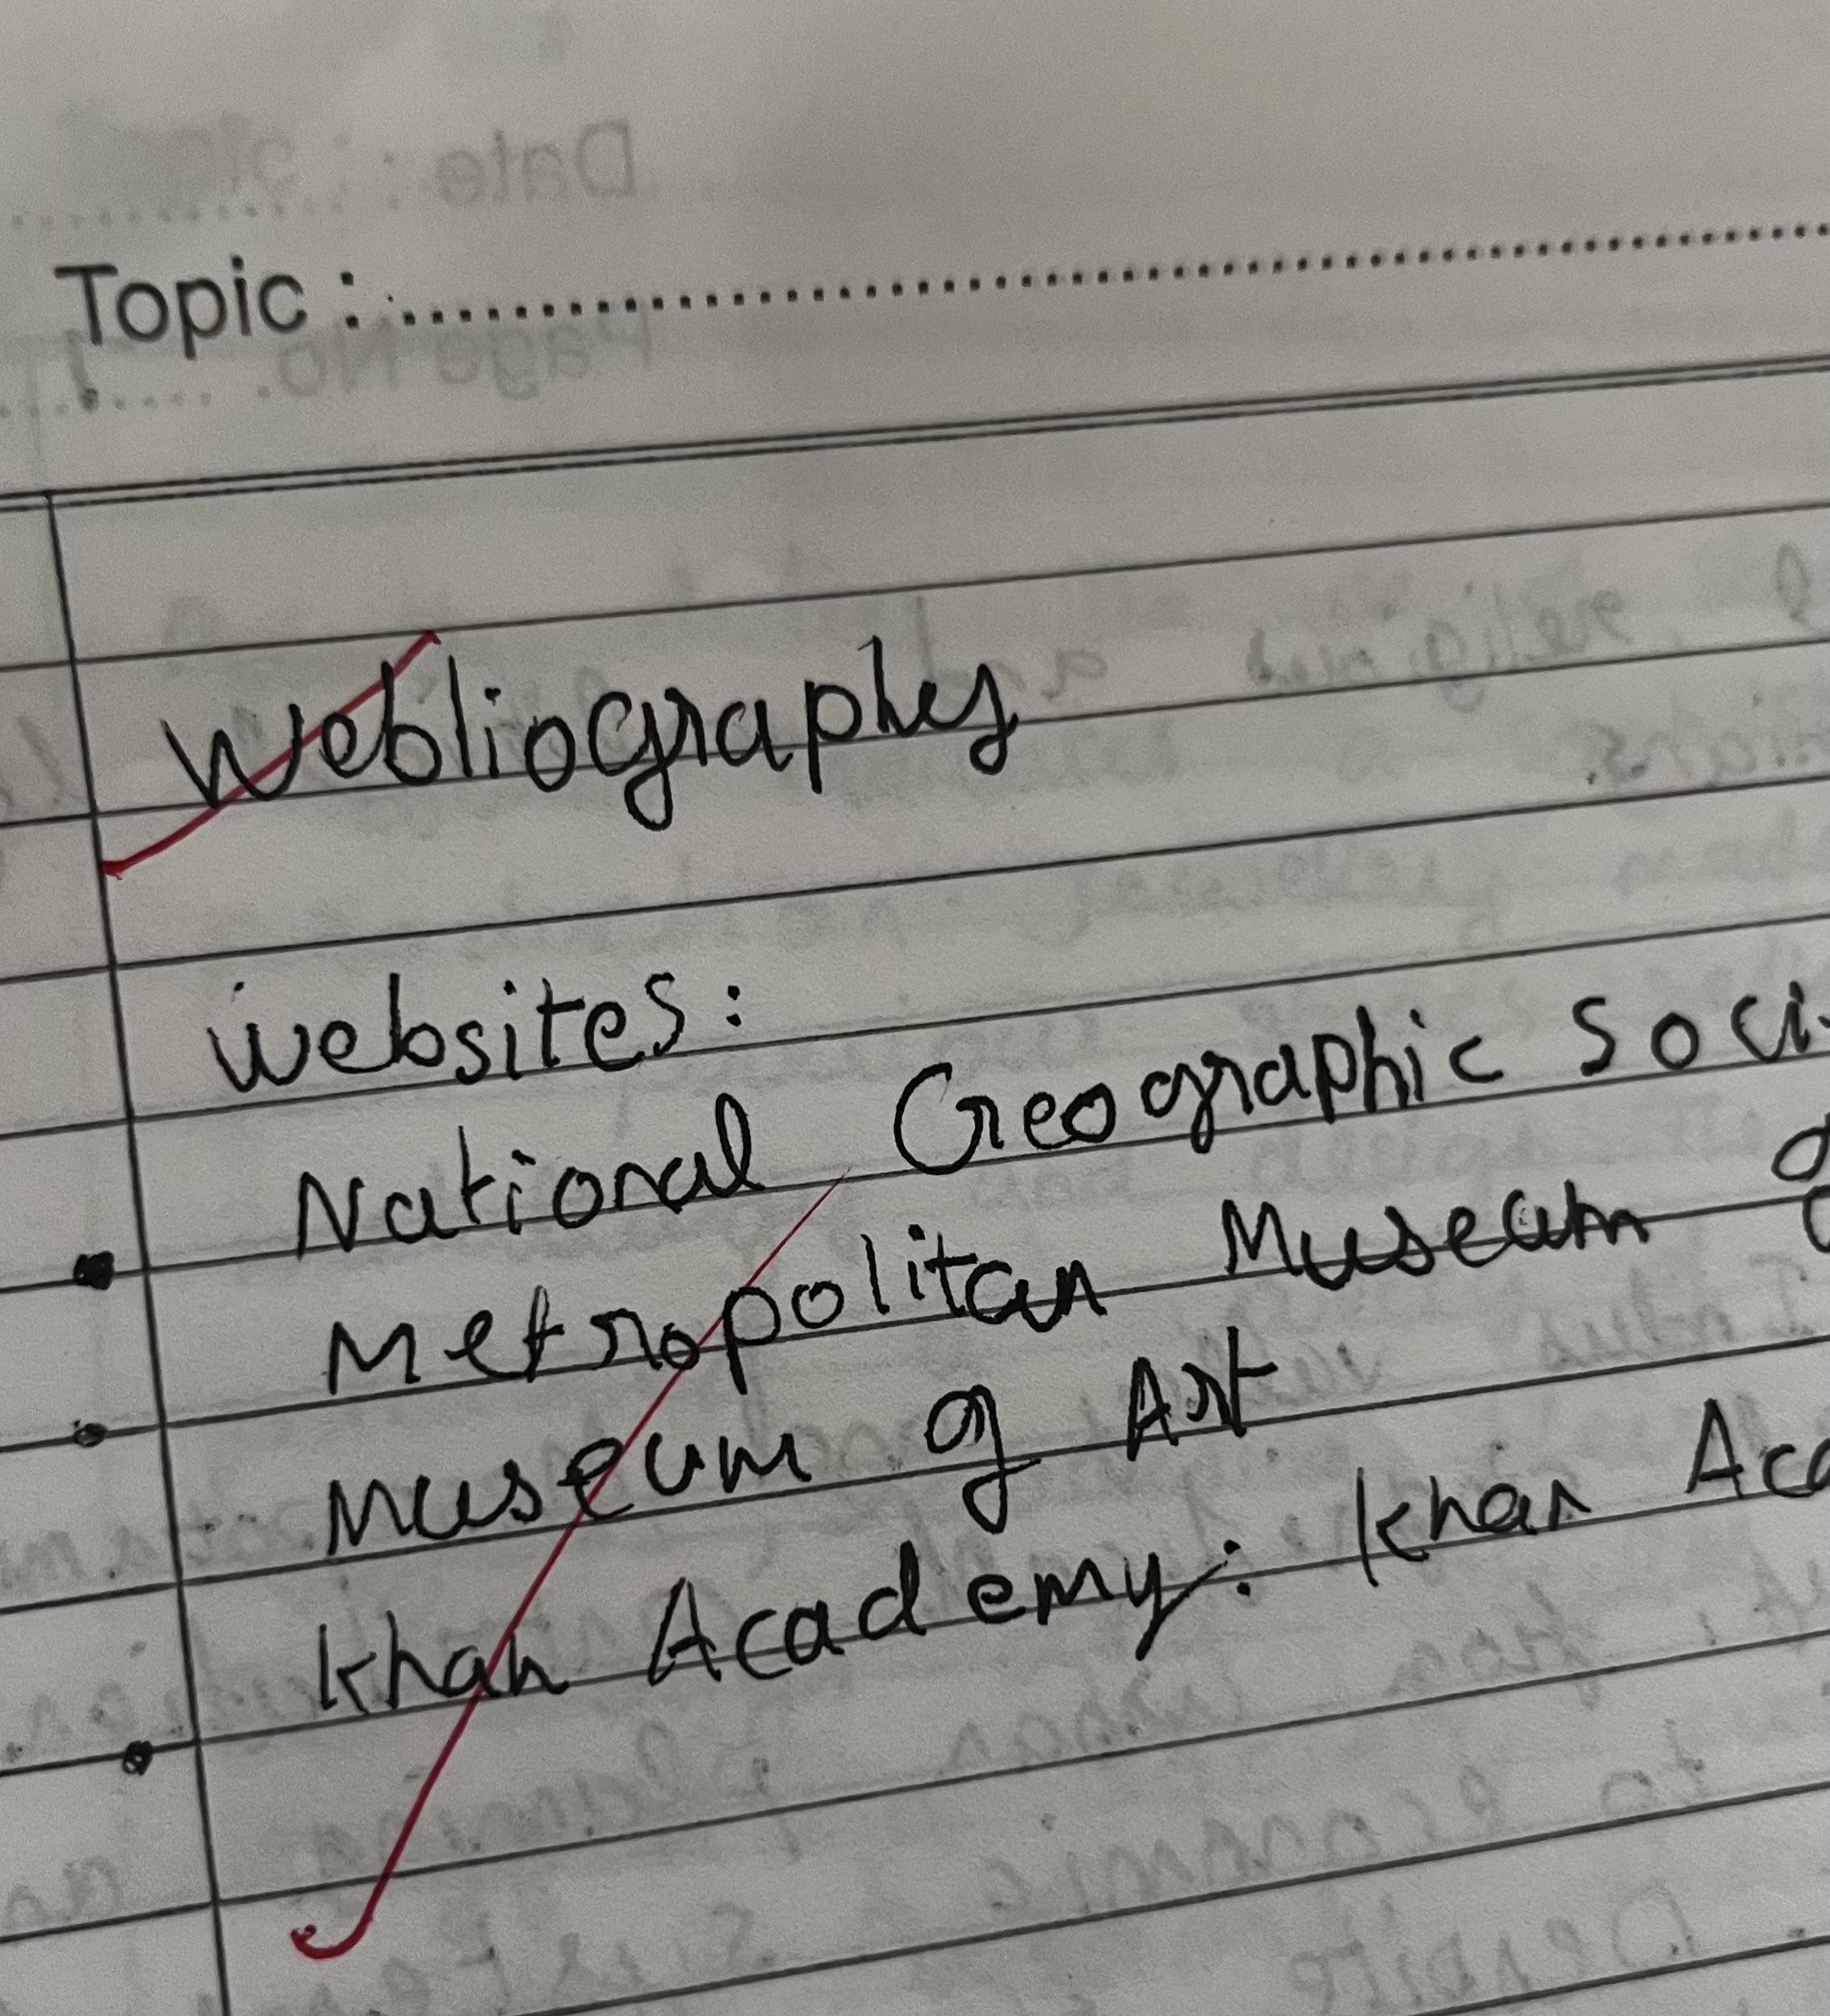 Topic :
Webliography
Websites:
National Geographic Soci
Metropolitan Museum
Museum of Art
Khan Academy: Khan Aca